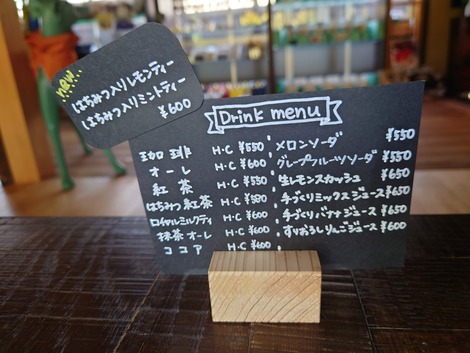 new
はちみつ入りレモンティー
はちみつ入りミントティー
¥600
Drink menu
珈琲 H・C ¥550
オーレ H・C ¥600
紅茶 H・C ¥550
はちみつ紅茶 H・C ¥580
ロイヤルミルクティ H・C ¥600
抹茶オーレ H・C ¥600
ココア H・C ¥600
メロンソーダ ¥550
グレープフルーツソーダ ¥550
生レモンスカッシュ ¥550
手づくりミックスジュース ¥650
手づくりバナナジュース ¥650
すりおろしりんごジュース ¥600